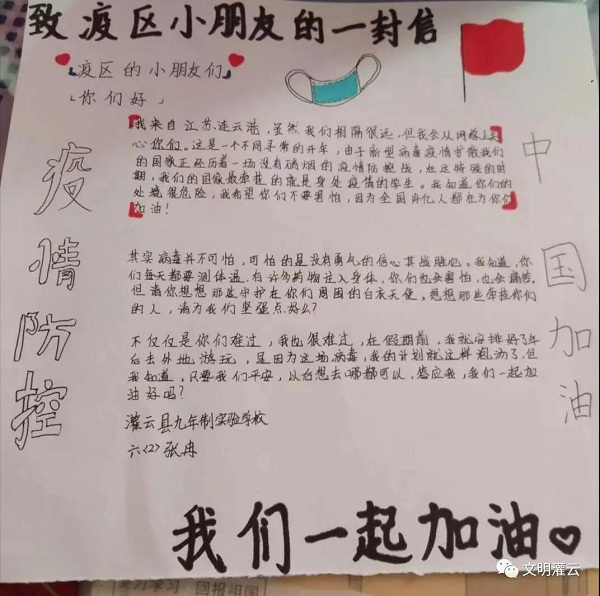 致疫区小朋友的一封信
疫区的小朋友们
你们好
我来自江苏连云港,虽然我们相隔很远,但我会从网络上关
心你们。这是一个不同寻常的开年,由于新型病毒疫情扩散我们
的国家正在历着一场没有硝烟的疫情防控战,在这特殊的时
期,我们的国家最牵挂的就是身处疫情的学生。我知道你们的
处境很危险,我希望你们不要害怕,因为全国每亿人都在为你们
加油!
其实病毒并不可怕,可怕的是没有勇气的信心其战胜它。我知道,你
们每天都要测体温,有许多药物注入身体,你们也会害怕,也会痛苦,
但请你想想那些守护在你们周围的白衣天使,想想那些牵挂你们
的人,请为我们坚强点好么?
不仅仅是你们难过,我也很难过,在假期前,我就安排好了年
后去外地游玩,是因为这场病毒,我的计划就这样泡汤了,但
我知道,只要我们平安,以后想去哪都可以,答应我,我们一起加
油好吗?
灌云县九年制实验学校
六(2)张冉
疫情防控
中国加油
我们一起加油
文明灌云
学习 回报祖国